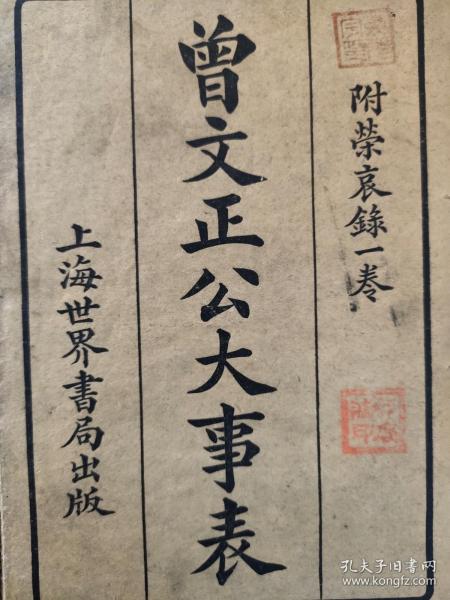 附榮哀錄一卷
曾文正公大事表
上海世界書局出版
孔夫子旧书网
www.kongfz.com